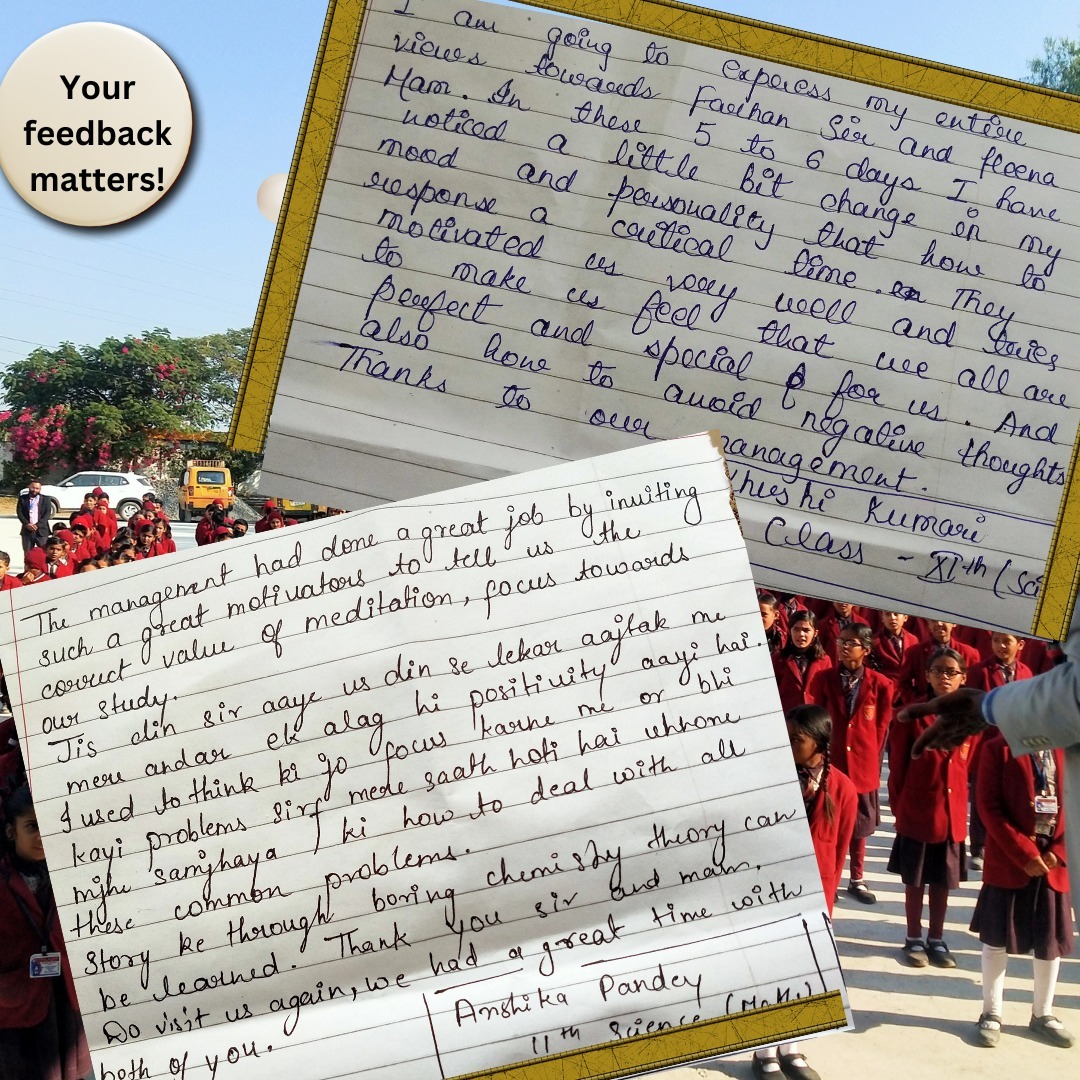 Your
feedback
matters!
I am going to express my entire
views towards Farhan Sir and
Mam. In these 5 to 6 days I have
noticed a little bit change in my
mood and personality that how to
response a critical time. They
motivated us very well and tries
to make us feel that we all are
perfect and special for us. And
also how to avoid negative thoughts
Thanks to our management.
Kumari
Class - XIth (Sci
The management had done a great job by inviting
such a great motivators to tell us the
correct value of meditation, focus towards
our study.
Jis din sir aaye us din se lekar aajtak me
mere andar ek alag hi positivity aayi hai.
I used to think ki jo focus karne me or bhi
kayi problems sirf mere saath hoti hai unhone
mjhe samjhaya ki how to deal with all
these common problems.
Story ke through boring chemistry theory can
be learned. Thank you sir and mam.
Do visit us again, we had a great time with
both of you.
Anshika Pandey
11th Science (Maths)